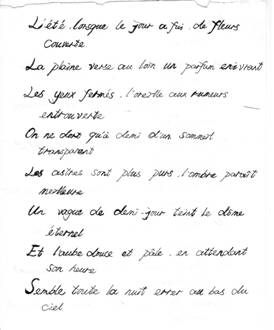 L'été, lorsque le jour a fui, de fleurs
couverte
La plaine verse au loin un parfum enivrant
Les yeux fermés, l'oreille aux rumeurs
entrouverte
On ne dort qu'à demi d'un sommeil
transparent
Les astres sont plus purs, l'ombre paraît
meilleure
Un vague de demi-jour teint le dôme
éternel
Et l'aube douce et pâle, en attendant
son heure
Semble toute la nuit errer au bas du
ciel